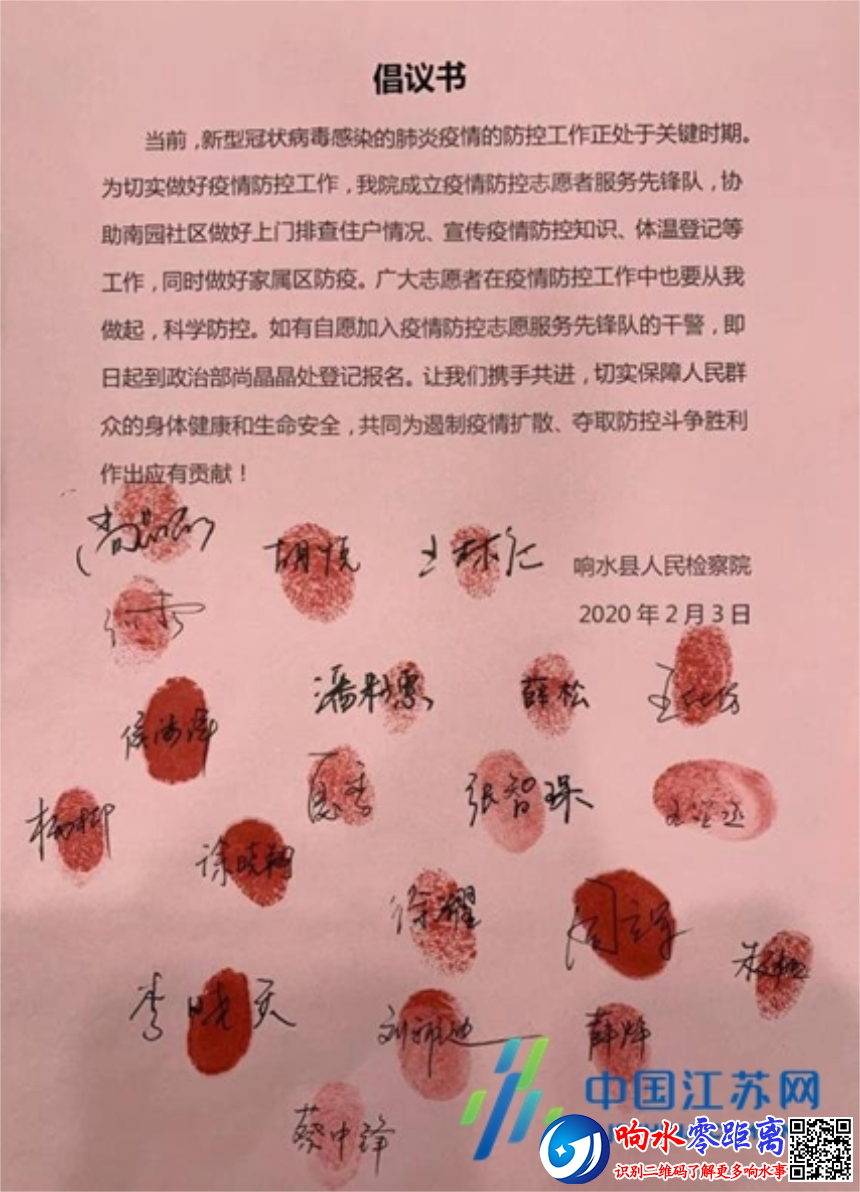 倡议书
当前，新型冠状病毒感染的肺炎疫情的防控工作正处于关键时期。
为切实做好疫情防控工作，我院成立疫情防控志愿者服务先锋队，协
助南园社区做好上门排查住户情况、宣传疫情防控知识、体温登记等
工作，同时做好家属区防疫。广大志愿者在疫情防控工作中也要从我
做起，科学防控。如有自愿加入疫情防控志愿服务先锋队的干警，即
日起到政治部尚晶晶处登记报名。让我们携手共进，切实保障人民群
众的身体健康和生命安全，共同为遏制疫情扩散、夺取防控斗争胜利
作出应有贡献！
尚晶晶
胡悦 王林仁 响水县人民检察院
2020年2月3日
薛松
夏青 张智瑔
杨柳
徐晓翔
徐耀
李晓天
薛炜
蔡中锋
中国江苏网
响水零距离
识别二维码了解更多响水事